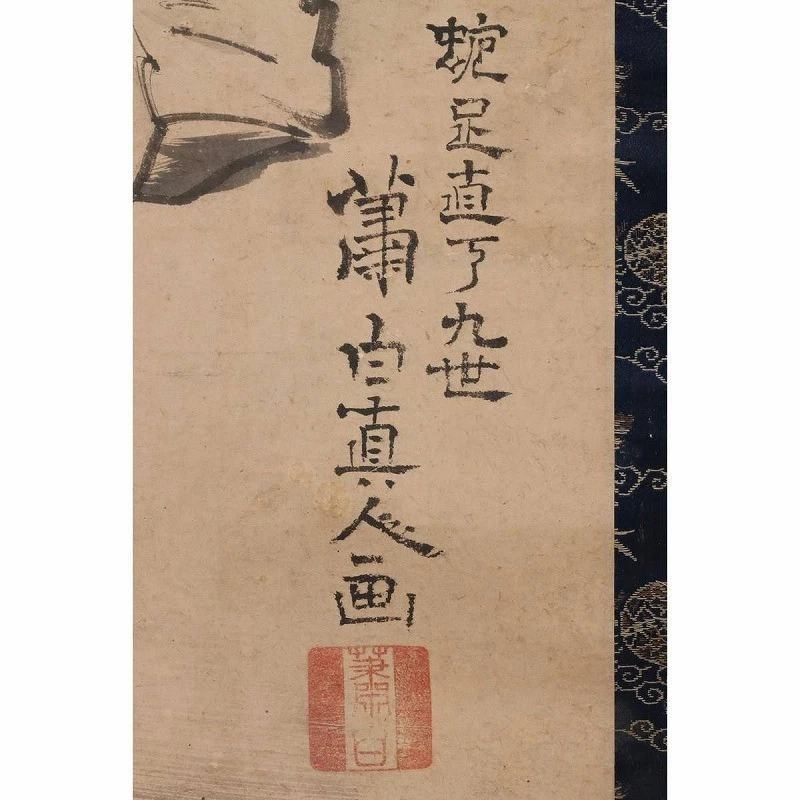 蛇足直下九世
蕭白眞人画
蕭白